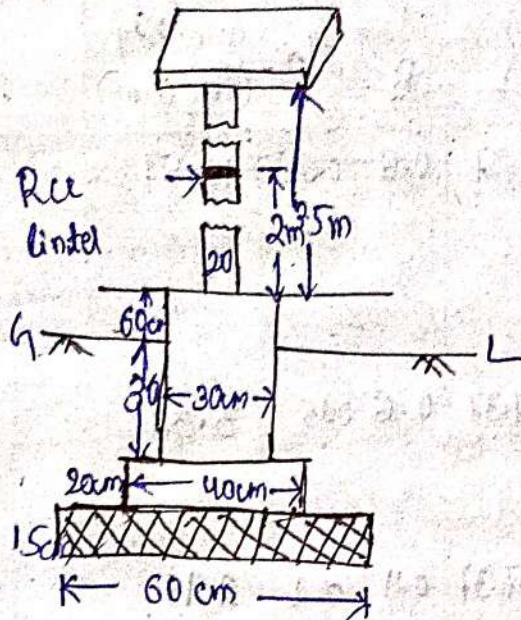 Rcc
lintel
2m
3.5m
20
60cm
G
L
30cm
20cm
40cm
15cm
60 cm